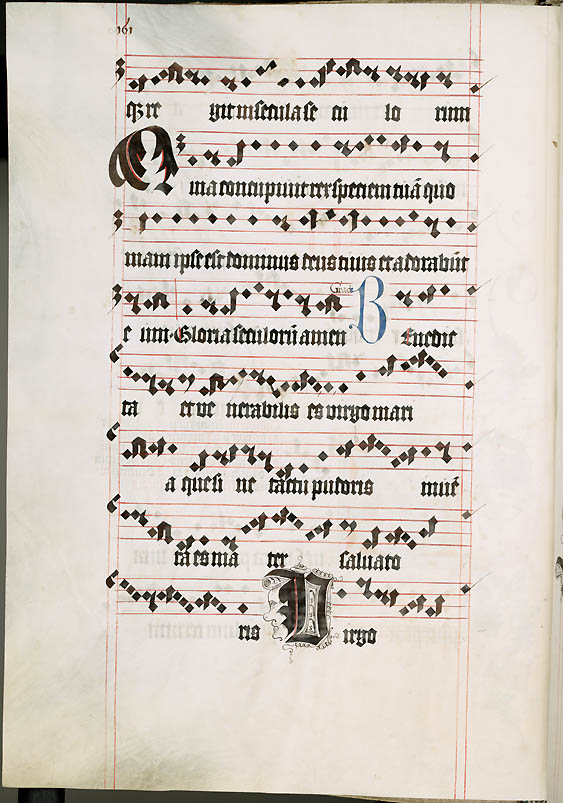 161
q₃ re git in secula se cu lo rum
Quia concupiuit rex speciem tuā quo
niam ipse est dominus deus tuus et adorabūt
e um · Gloria seculorū amen Grad. Benedic
ta et ve nerabilis es virgo mari
a que si ne tactu pudoris inuē
ta es ma ter saluato
ris Virgo